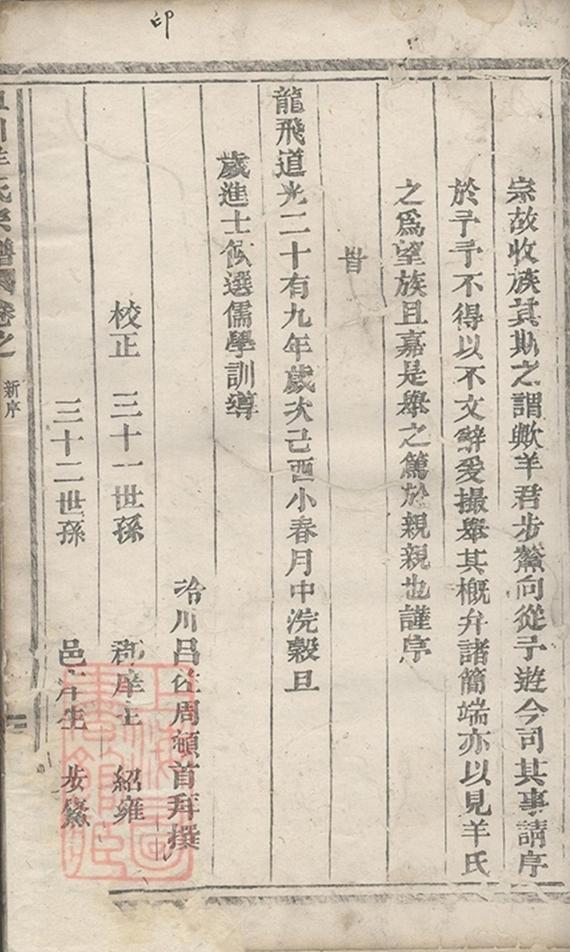 印
宗故收族其斯之謂歟羊君步鰲向從予遊今司其事請序
於予予不得以不文辭爰撮舉其概弁諸簡端亦以見羊氏
之爲望族且嘉是舉之篤於親親也謹序
旹
龍飛道光二十有九年歲次己酉小春月中浣穀旦
歲進士候選儒學訓導
冶川呂佐周頓首拜撰
校正 三十一世孫 郡庠生 紹雍
三十二世孫 邑庠生 步鰲
羊氏宗譜 卷之
新序